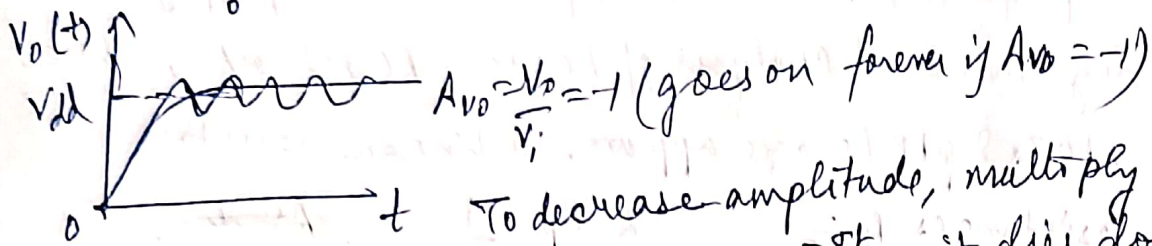 V₀(t)
Vdd
A_V0 = V₀/Vᵢ = -1 (goes on forever if A_V0 = -1)
0
t
To decrease amplitude, multiply